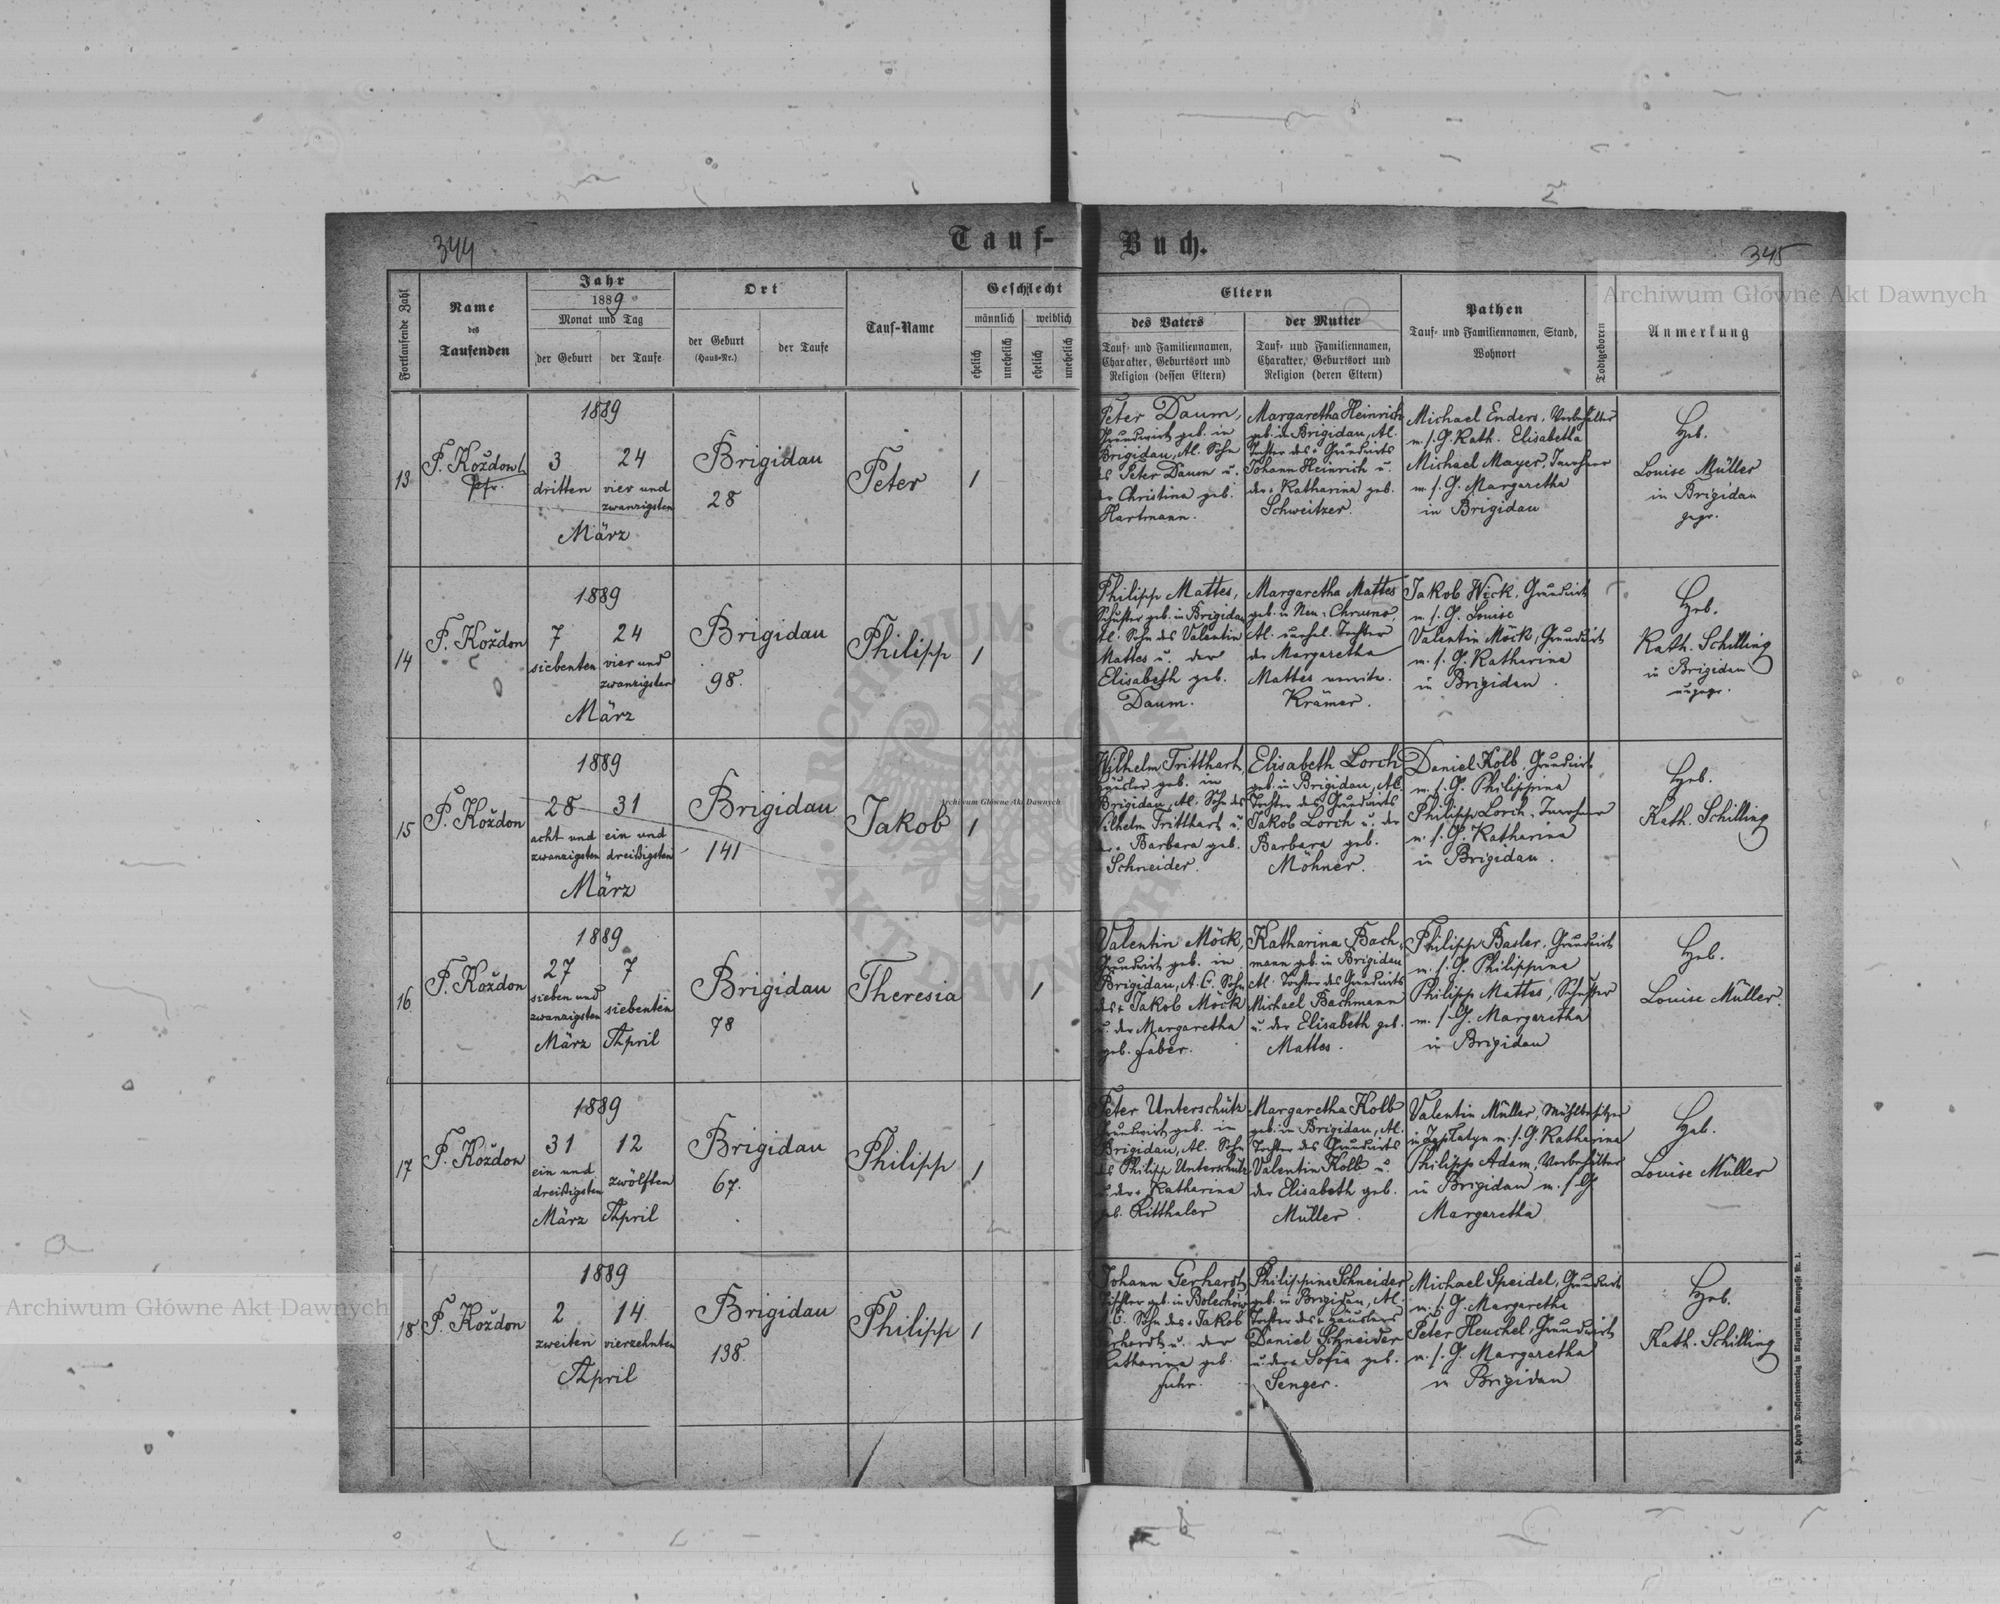 344
Tauf-
Buch.
345
Fortlaufende Zahl
Name
des
Taufenden
Jahr
1889
Monat und Tag
der Geburt
der Taufe
Ort
der Geburt
(Haus-Nr.)
der Taufe
Tauf-Name
Geschlecht
männlich
weiblich
ehelich
unehelich
ehelich
unehelich
Eltern
des Vaters
Tauf- und Familiennamen,
Charakter, Geburtsort und
Religion (dessen Eltern)
der Mutter
Tauf- und Familiennamen,
Charakter, Geburtsort und
Religion (deren Eltern)
Pathen
Tauf- und Familiennamen, Stand,
Wohnort
Todtgeboren
Anmerkung
13
F. Koždon
Pfr.
1889
3
dritten
24
vier und
zwanzigsten
März
Brigidau
28
Peter
1
Peter Daum,
Grundwirt geb. in
Brigidau, Al. Sohn
des Peter Daum u.
der Christina geb.
Hartmann.
Margaretha Heinrich
geb. in Brigidau, Al.
Tochter des Grundwirts
Johann Heinrich u.
der Katharina geb.
Schweitzer.
Michael Enders, Vorbehälter
m. s. G. Kath. Elisabetha
Michael Mayer, Inwohner
m. s. G. Margaretha
in Brigidau
Heb.
Louise Müller
in Brigidau
gepr.
14
F. Koždon
1889
7
siebenten
24
vier und
zwanzigsten
März
Brigidau
98.
Philipp
1
Philipp Mattes,
Schuster geb. in Brigidau
Al. Sohn des Valentin
Mattes u. der
Elisabeth geb.
Daum.
Margaretha Mattes
geb. in Neu-Chrusno,
Al. unehel. Tochter
der Margaretha
Mattes verwitw.
Krämer.
Jakob Wick, Grundwirt
m. s. G. Louise
Valentin Möck, Grundwirt
m. s. G. Katharina
in Brigidau.
Heb.
Kath. Schilling
in Brigidau
ungepr.
15
F. Koždon
1889
28
acht und
zwanzigsten
31
ein und
dreißigsten
März
Brigidau
141
Jakob
1
Wilhelm Tritthart,
Häusler geb. in
Brigidau, Al. Sohn des
Wilhelm Tritthart u.
der Barbara geb.
Schneider.
Elisabeth Lorch
geb. in Brigidau, Al.
Tochter des Grundwirts
Jakob Lorch u. der
Barbara geb.
Möhner.
Daniel Kolb, Grundwirt
m. s. G. Philippina
Philipp Lorch, Inwohner
m. s. G. Katharina
in Brigidau.
Heb.
Kath. Schilling
16
F. Koždon
1889
27
sieben und
zwanzigsten
März
7
siebenten
April
Brigidau
78
Theresia
1
Valentin Möck,
Grundwirt geb. in
Brigidau, A. C. Sohn
des Jakob Möck
u. der Margaretha
geb. Faber.
Katharina Bach-
mann geb. in Brigidau
Al. Tochter des Grundwirts
Michael Bachmann
u. der Elisabeth geb.
Mattes.
Philipp Basler, Grundwirt
m. s. G. Philippina
Philipp Mattes, Schuster
m. s. G. Margaretha
in Brigidau
Heb.
Louise Müller.
17
F. Koždon
1889
31
ein und
dreißigsten
März
12
zwölften
April
Brigidau
67.
Philipp
1
Peter Unterschütz
Grundwirt geb. in
Brigidau, Al. Sohn
des Philipp Unterschütz
u. der Katharina
geb. Ritthaler
Margaretha Kolb
geb. in Brigidau, Al.
Tochter des Grundwirts
Valentin Kolb u.
der Elisabeth geb.
Müller.
Valentin Müller, Mühlbesitzer
m. s. G. Katharina
Philipp Adam, Vorbehälter
in Brigidau m. s. G.
Margaretha
Heb.
Louise Müller
18
F. Koždon
1889
2
zweiten
14
vierzehnten
April
Brigidau
138.
Philipp
1
Johann Gerhardt,
Tischler geb. in Bolechów
A. C. Sohn des Jakob
Gerhardt u. der
Katharina geb.
Fuhr.
Philippina Schneider
geb. in Brigidau, Al.
Tochter des Häuslers
Daniel Schneider
u. der Sofia geb.
Senger.
Michael Speidel, Grundwirt
m. s. G. Margaretha
Peter Heuchel, Grundwirt
m. s. G. Margaretha
in Brigidau
Heb.
Kath. Schilling
Archiwum Główne Akt Dawnych
Archiwum Główne Akt Dawnych
Archiwum Główne Akt Dawnych
ARCHIWUM GŁÓWNE AKT DAWNYCH